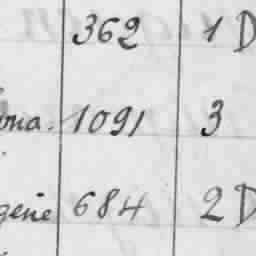 362 1 D
ona. 1091 3
gene 684 2 D